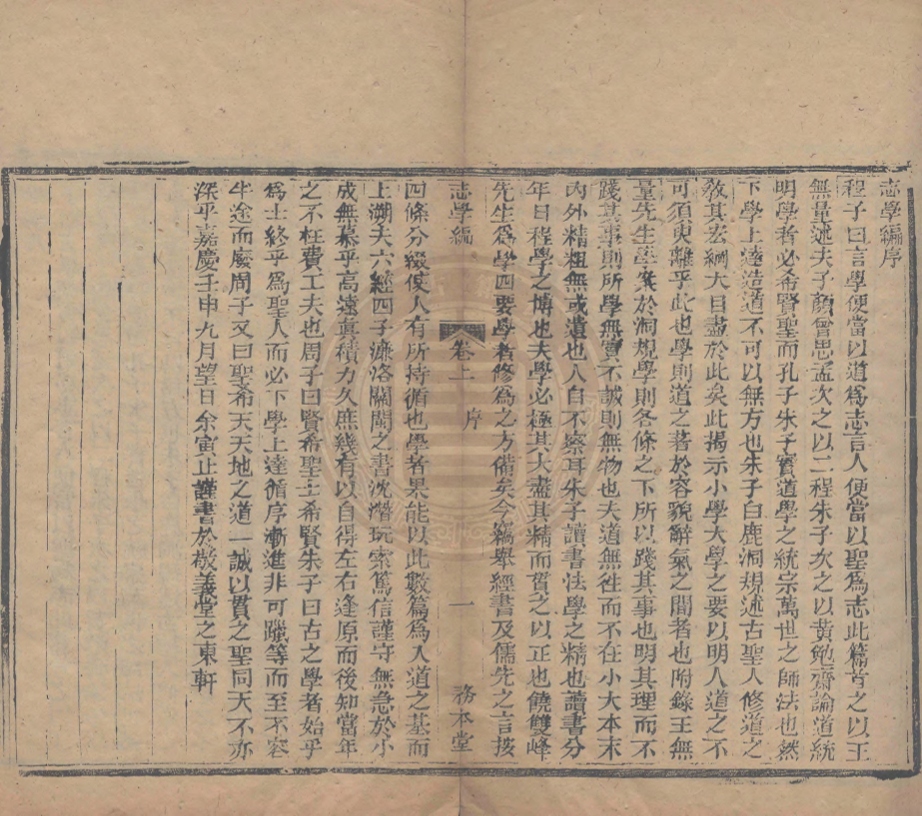 志學編序
程子曰言學便當以道爲志言人便當以聖爲志此篇首之以王
無量述夫子顏曾思孟次之以二程朱子次之以黄勉齋論道統
明學者必希賢聖而孔子朱子實道學之統宗萬世之師法也然
下學上達造道不可以無方也朱子白鹿洞規述古聖人修道之
敎其宏綱大目盡於此矣此揭示小學大學之要以明人道之不
可須臾離乎此也學則道之著於容貌辭氣之間者也附錄王無
量先生學案於洞規學則各條之下所以踐其事也明其理而不
踐其事則所學無實不誠則無物也夫道無徃而不在小大本末
內外精粗無或遺也人自不察耳朱子讀書法學之精也讀書分
年日程學之博也夫學必極其大盡其精而貿之以正也饒雙峰
先生爲學四要學者修爲之方備矣今竊舉經書及儒先之言按
志學編 卷上 序 一 務本堂
四條分綴使人有所持循也學者果能以此數篇爲入道之基而
上溯夫六經四子濂洛關閩之書沈潛玩索篤信謹守無急於小
成無慕乎高遠眞積力久庶幾有以自得左右逢原而後知當年
之不枉費工夫也周子曰賢希聖士希賢朱子曰古之學者始乎
爲士終乎爲聖人而必下學上達循序漸進非可躐等而至不容
半途而廢周子又曰聖希天天地之道一誠以貫之聖同天不亦
深乎嘉慶壬申九月望日余寅止謹書於敬義堂之東軒